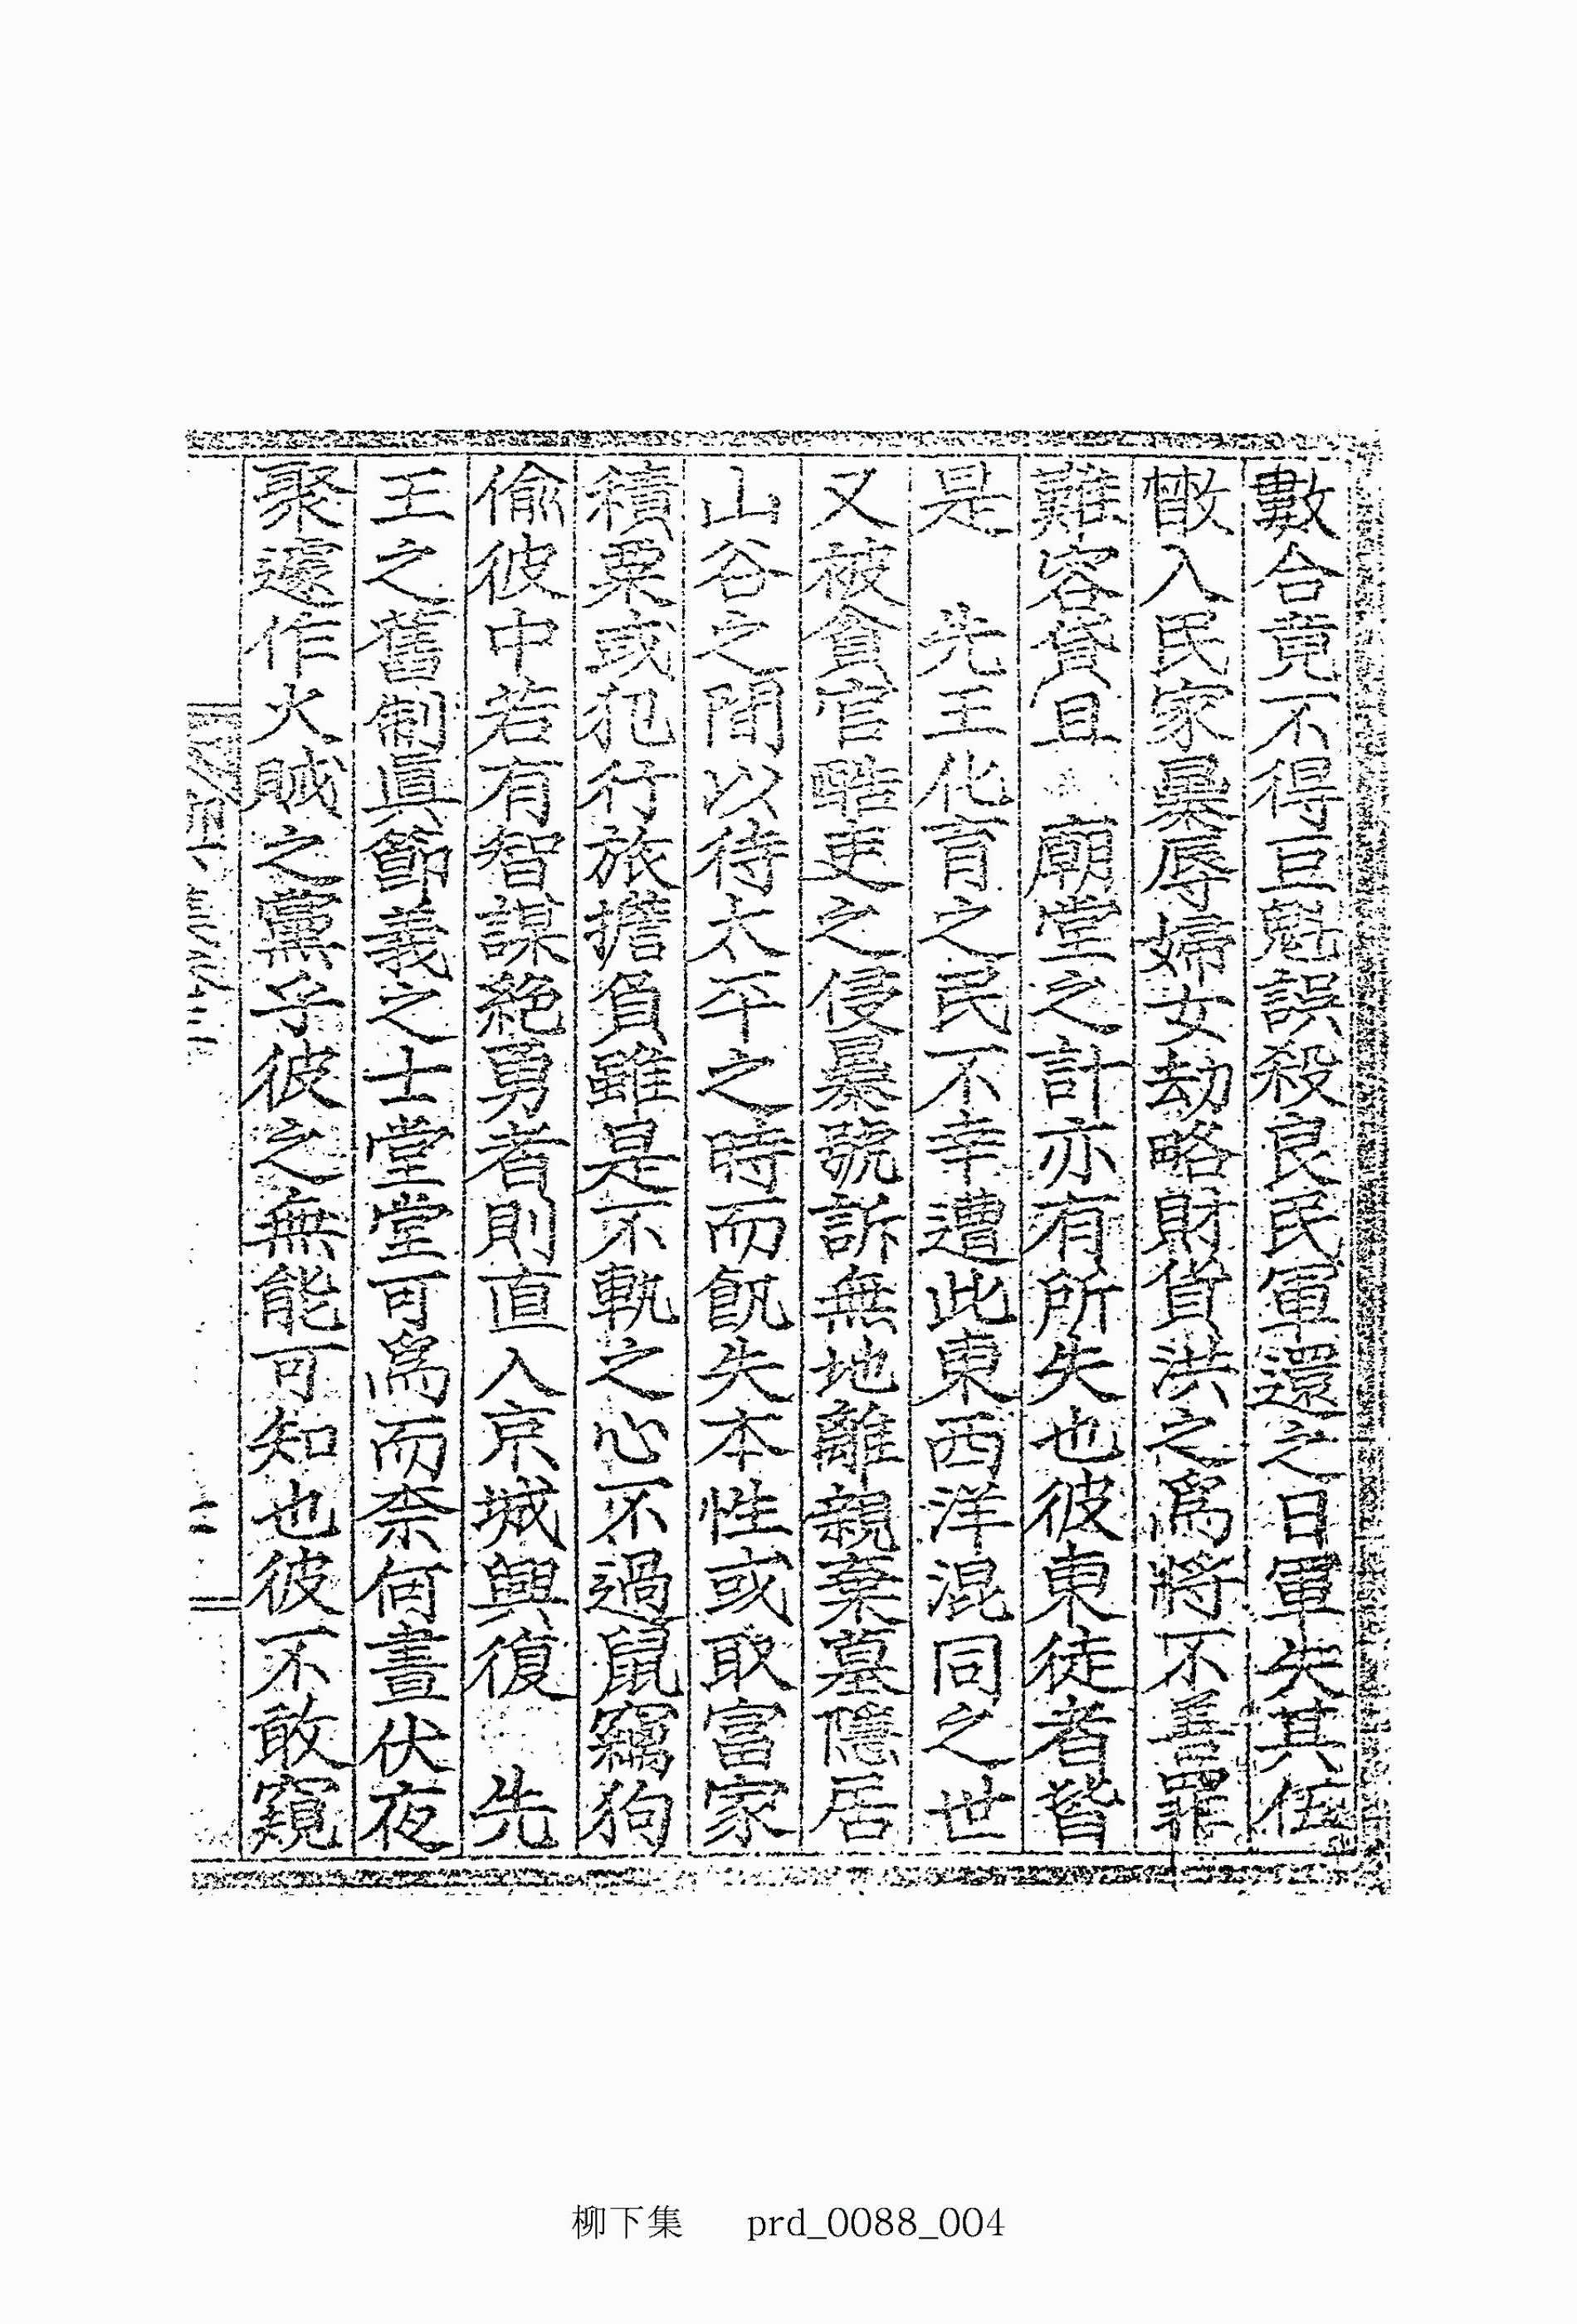 數合竟不得巨魁誤殺良民軍還之日軍失其伍
散入民家暴辱婦女劫略財貨洪之爲將不善罪
難容貸且 廟堂之計亦有所失也彼東徒者皆
是 先王化育之民不幸遭此東西洋混同之世
又被貪官酷吏之侵暴號訴無地離親棄墓隱居
山谷之間以待太平之時而飢失本性或取富家
積粟或犯行旅擔負雖是不軌之心不過鼠竊狗
偸彼中若有智謀絶勇者則直入京城興復 先
王之舊制眞節義之士堂堂可爲而奈何晝伏夜
聚遽作火賊之黨乎彼之無能可知也彼不敢窺
柳下集 prd_0088_004